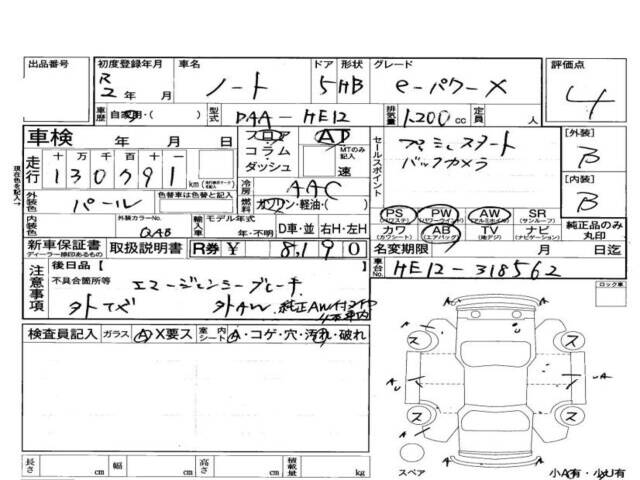 出品番号 初度登録年月 車名 ドア 形状 グレード 評価点
R2年 月 ノート 5 HB e-パワーX 4
車歴 自家用・( ) 型式 DAA-HE12 排気量 1200cc 定員 人
車検 年 月 日 フロア・コラム・ダッシュ AT MTのみ記入 速
セールスポイント プライムスタート
バックカメラ
[外装] B
[内装] B
走行 十 万 千 百 十 一
130791 km
冷房 AAC
外装色 パール 色替車は色替と記入
燃料 ガソリン・軽油・( )
内装色 外装カラーNo. QAB 輸入車 モデル年式 年・不明 D車・並 右H・左H
PS (パワステ) PW (パワーウインド) AW (アルミホイル) SR (サンルーフ)
カワ (カワシート) AB (エアバッグ) TV (地デジ) ナビ (ナビゲーション)
純正品のみ丸印
新車保証書 取扱説明書 R券 ¥ 8,190
ディーラー捺印あるもの
名変期限 月 日迄
車台No. HE12-318562
現在色を記入
注意事項 後日品【
不具合箇所等 エマージェンシーブレーキ
外AW 純正AW付タイヤ
ロック車
検査員記入 ガラス A・X要ス 室内シート A・コゲ・穴・汚れ・破れ
ス ス
A A U
U A
ス ス
長さ cm 幅 cm 高さ cm 積載量 kg
スペア 小A有・少U有